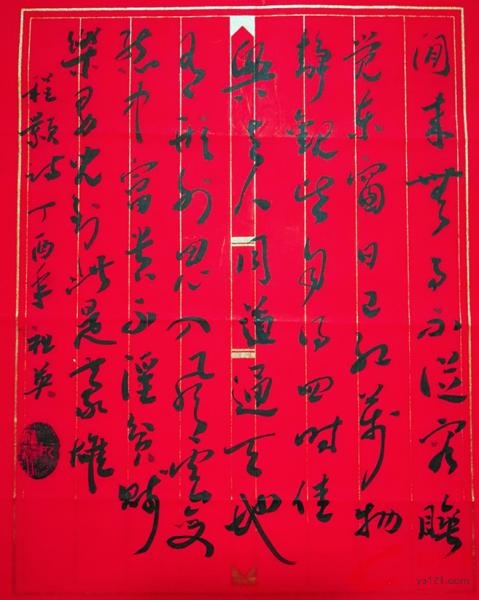 閒來無事不從容睡
觉東窗日已紅萬物
静觀皆自得四時佳
興与人同道通天地
有形外思入風雲变
態中富贵不淫貧賤
樂男兒到此是豪雄
程颢诗丁酉年祖英